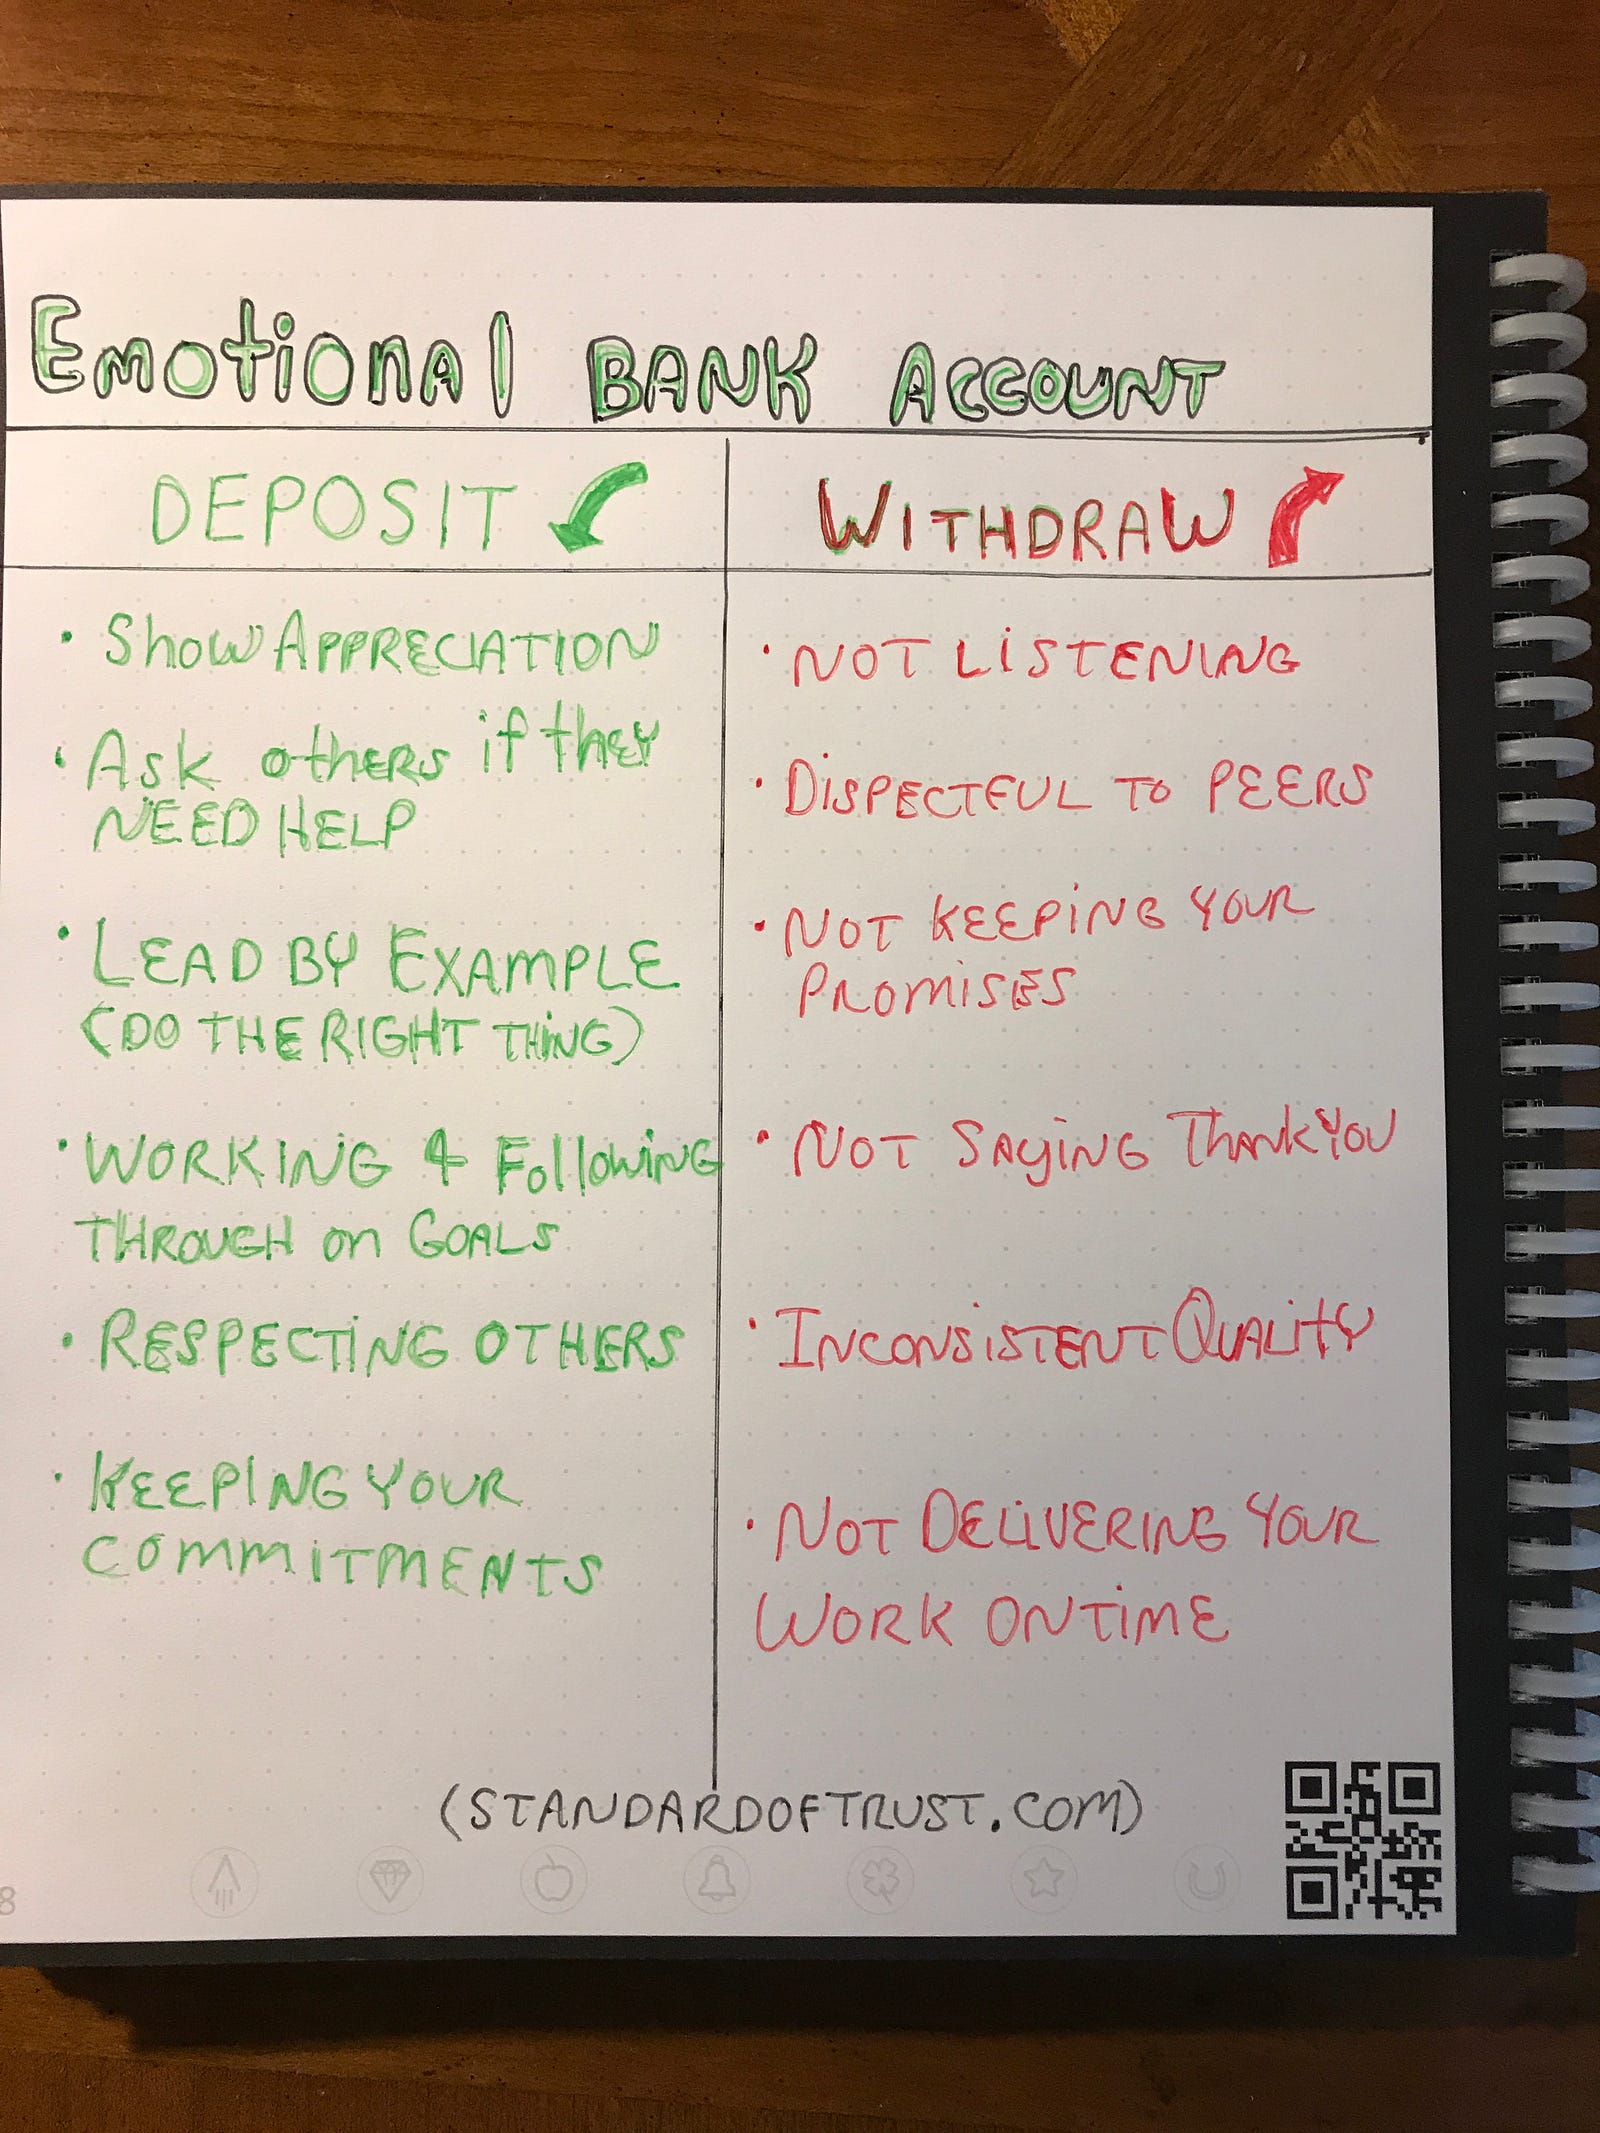 Emotional BANK ACCOUNT
DEPOSIT
WITHDRAW
• Show APPRECIATION
• Ask others if they
NEED HELP
• LEAD BY EXAMPLE
(DO THE RIGHT THING)
• WORKING & Following
THROUGH on GOALS
• RESPECTING OTHERS
• KEEPING YOUR
COMMITMENTS
• NOT LISTENING
• DISPECTFUL TO PEERS
• NOT KEEPING YOUR
PROMISES
• NOT SAying THANK YOU
• INCONSISTENT QUALITY
• NOT DELIVERING YOUR
WORK ON TIME
(STANDARDOFTRUST.COM)
8